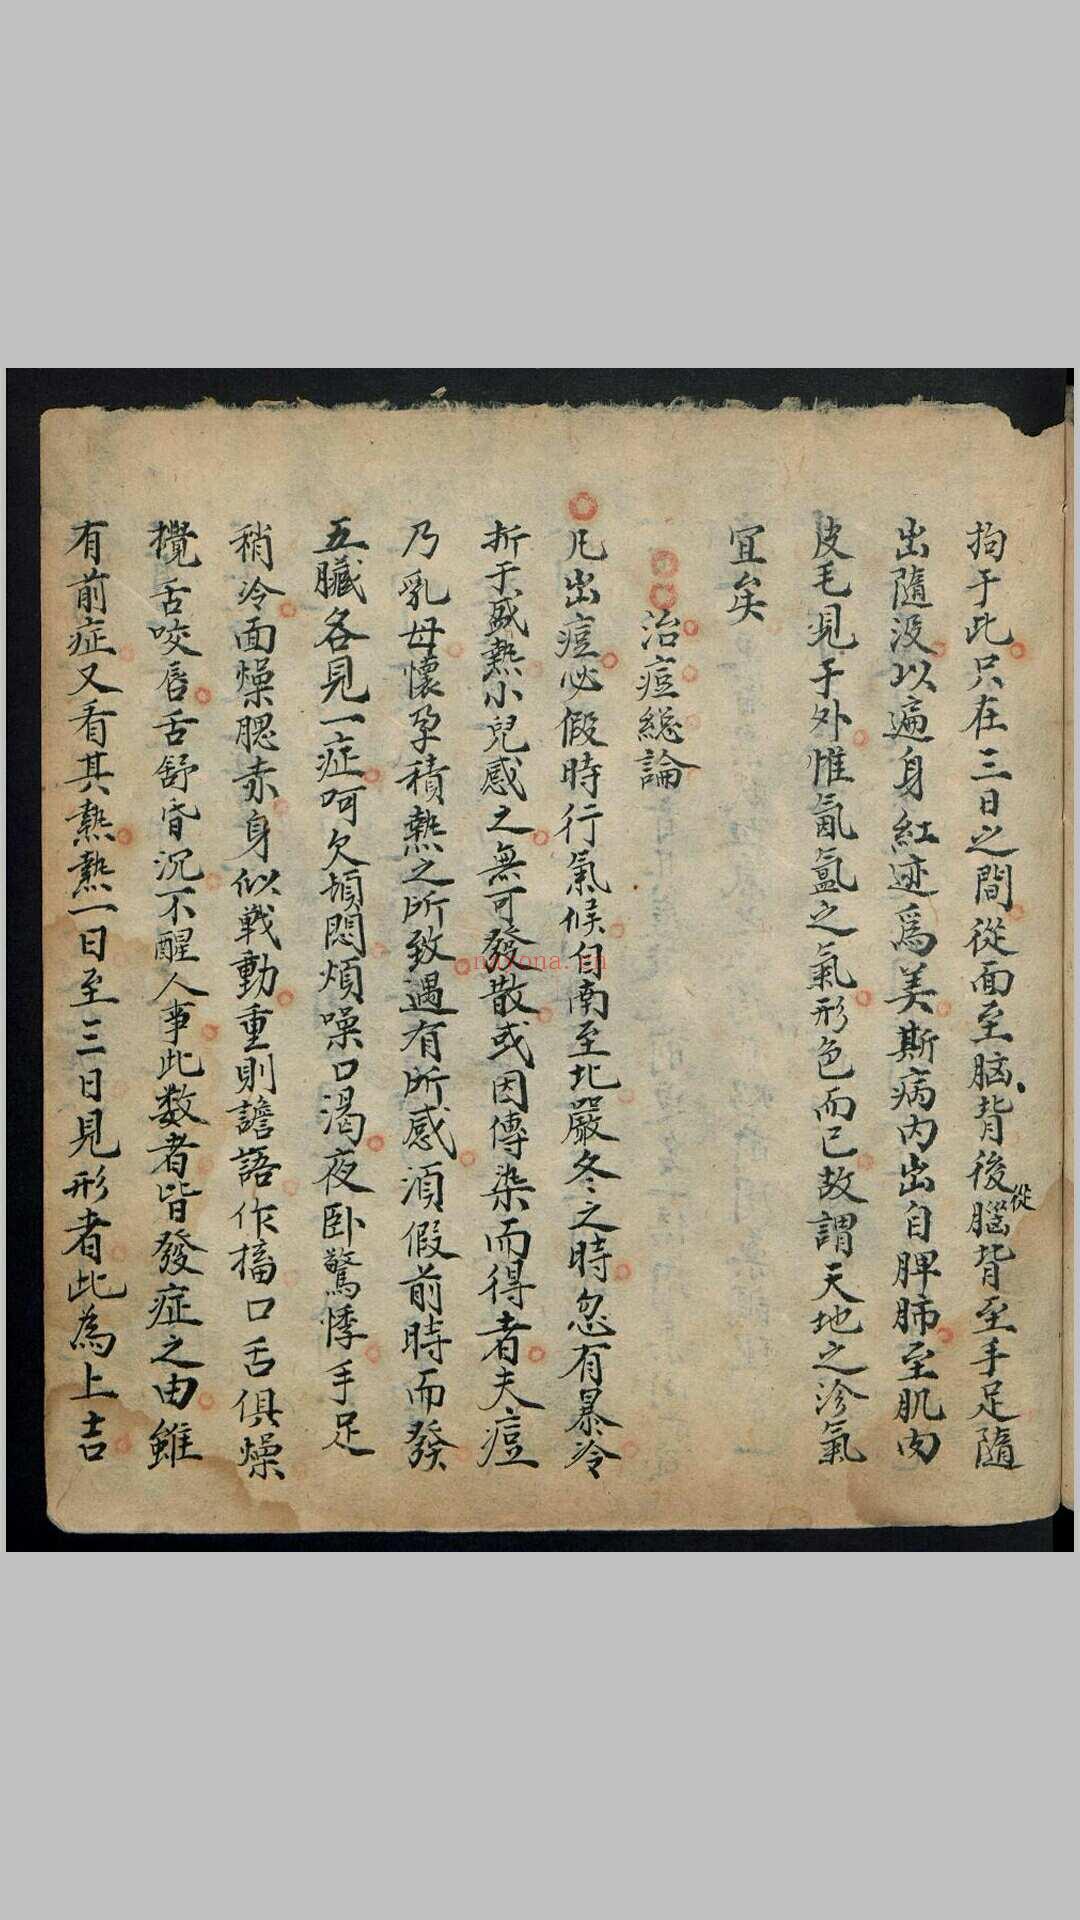 拘于此只在三日之間從面至脑背後腦背至手足隨
從
出隨没以遍身紅迹爲美斯病内出自脾肺至肌肉
皮毛見于外惟氤氳之氣形色而已故謂天地之沴氣
宜矣
治痘総論
凡出痘必假時行氣候自南至北嚴冬之時忽有暴冷
折于盛熱小兒感之無可發散或因傳染而得者夫痘
乃乳母懷孕積熱之所致遇有所感湏假前時而發
五臓各見一症呵欠頓悶煩噪口渴夜卧驚悸手足
稍冷面燥腮赤身似戦動重則譫語作搐口舌俱燥
攪舌咬唇舌舒昏沉不醒人事此数者皆發症之由雖
有前症又看其熱熱一日至三日見形者此為上吉
nayona.cn